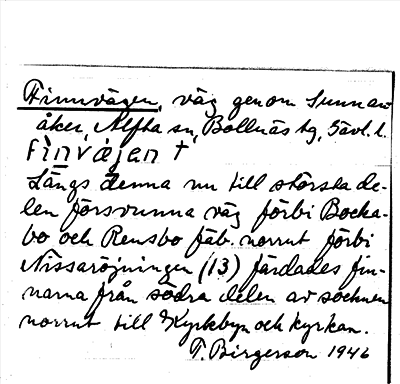 Finnvägen, väg genom Sunnan-
åker, Alfta sn, Bollnäs tg, Gävl. l.
finvä̀jen †
Längs denna nu till största de-
len försvunna väg förbi Bocka-
bo och Rensbo fäb. norrut förbi
Nissaröjningen (13) färdades fin-
narna från södra delen av socknen
norrut till Kyrkbyn och kyrkan.
T. Birgerson 1946